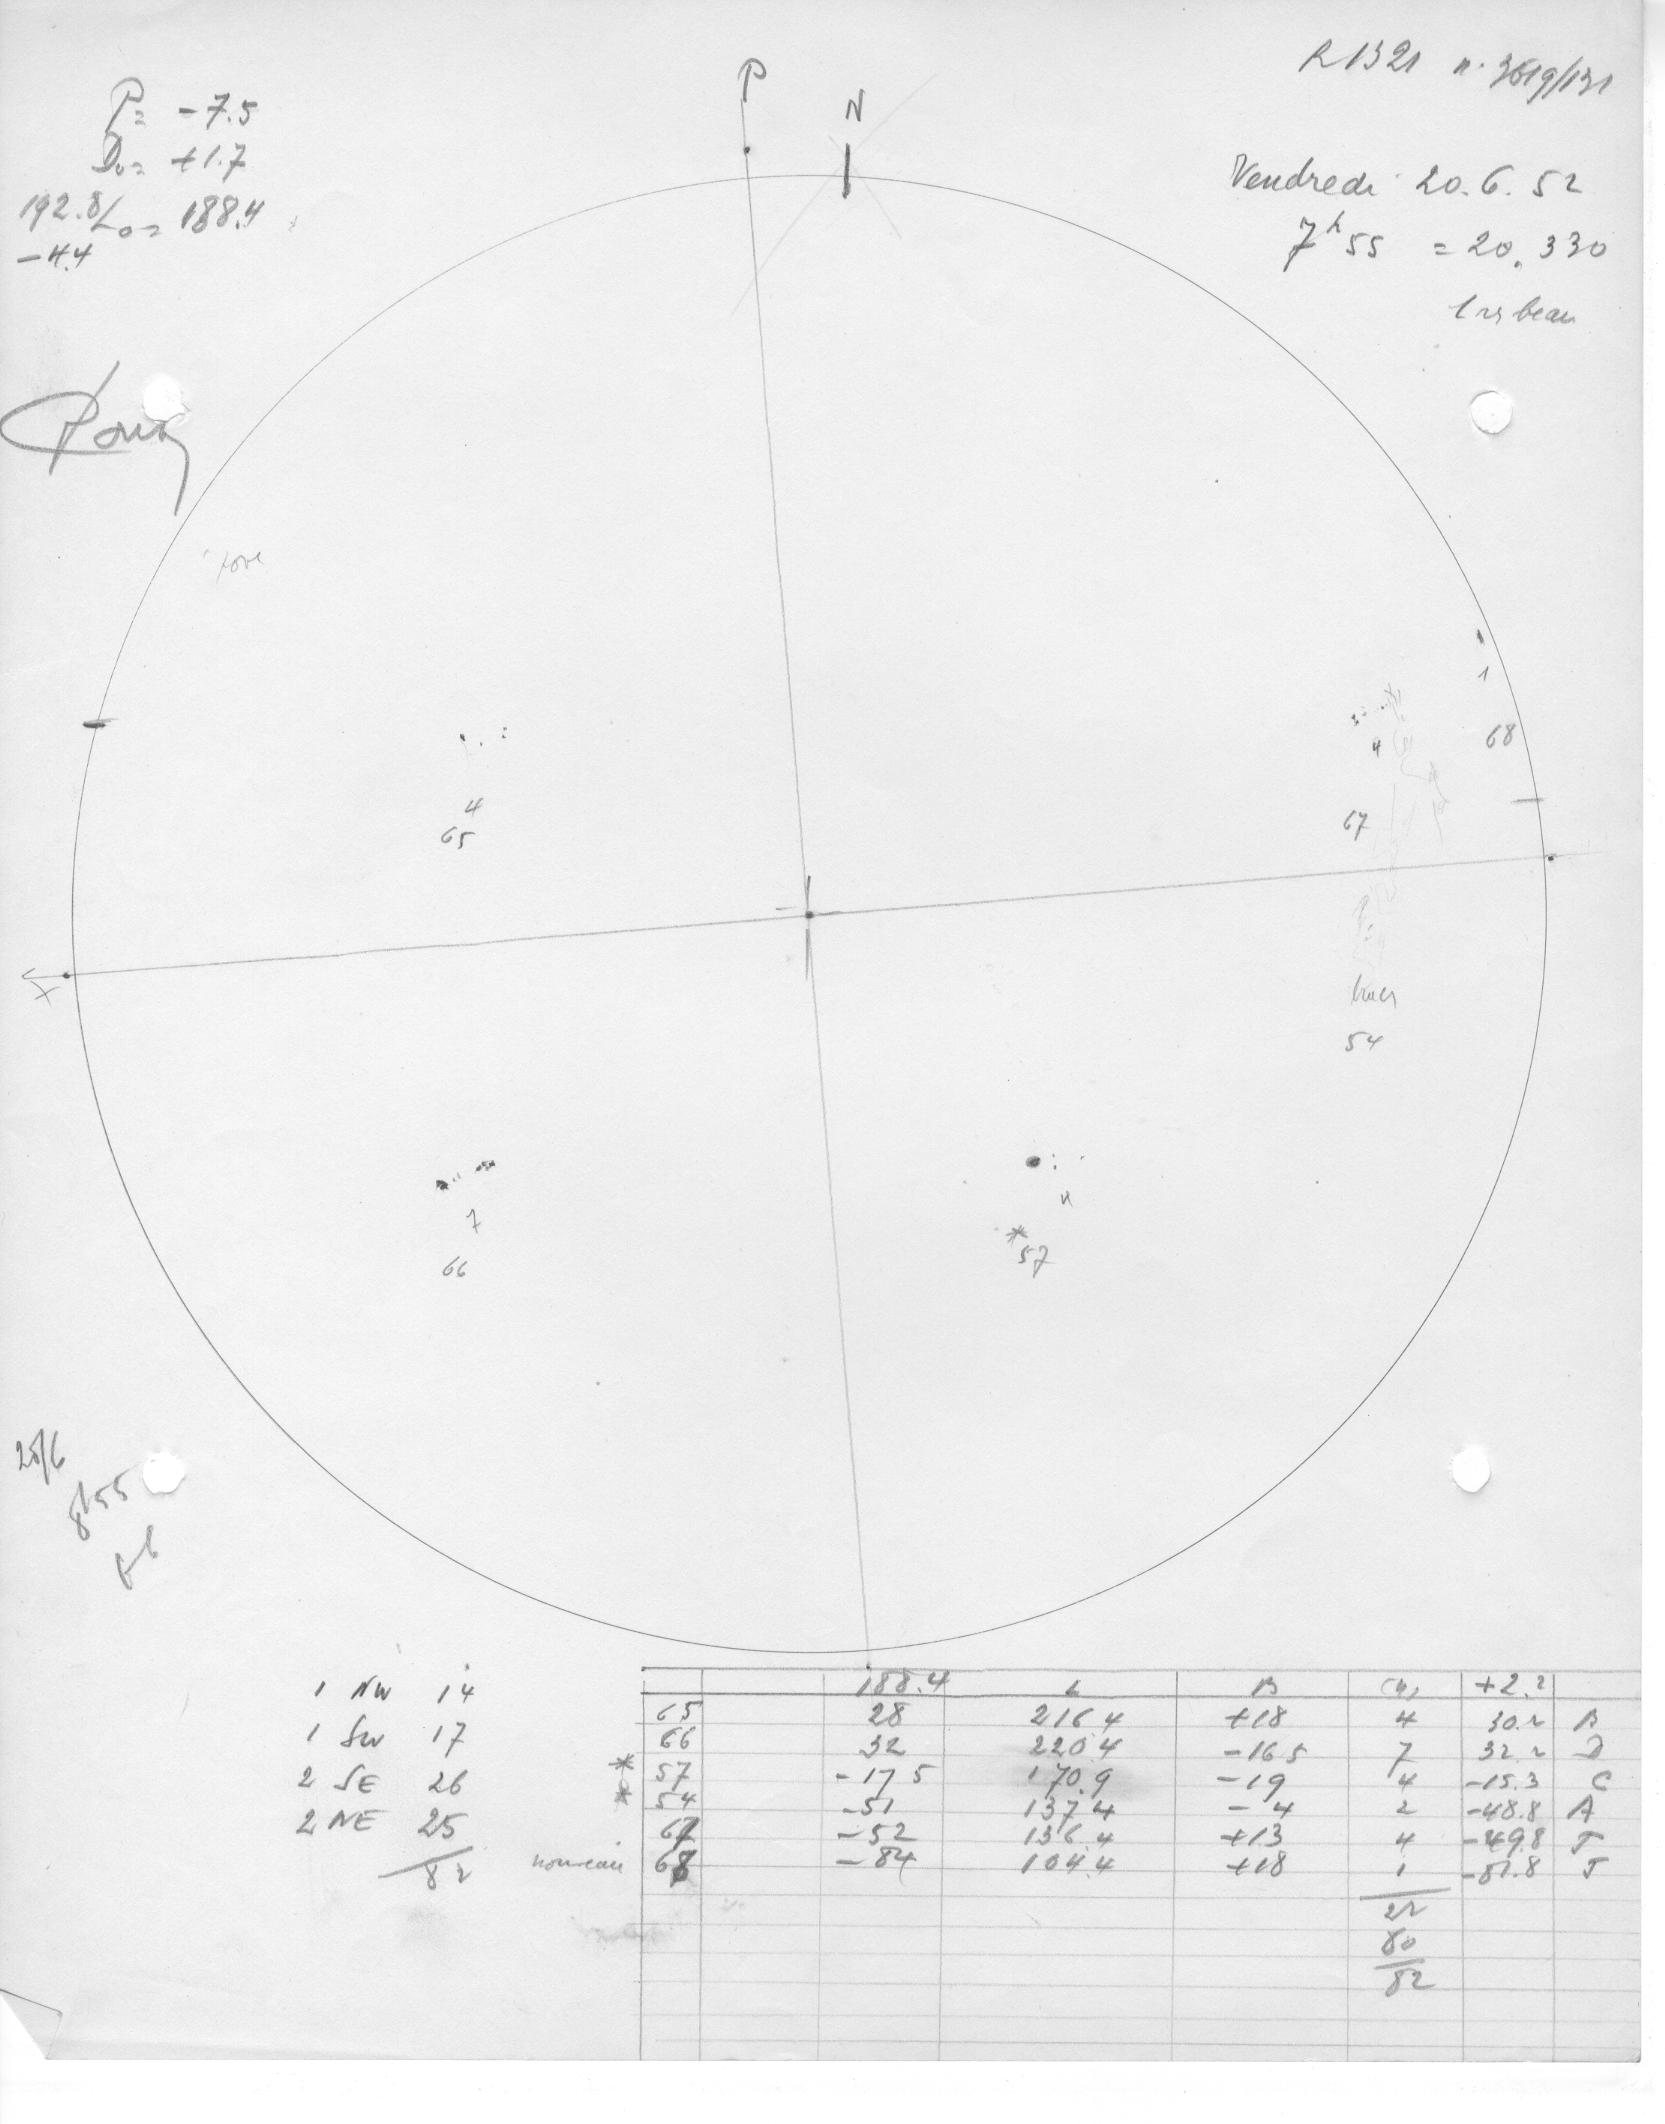 R 1321 n. 3619/131
P= -7.5
D₀= +1.7
192.8/L₀= 188.4
-4.4
P
N
Vendredi 20.6.52
7h55 =20.330
1
4
68
67
4
65
54
4
7
66
*57
8h55
1 NW 14
1 SW 17
2 SE 26
2 NE 25
82
188.4 L B +2.2
65 28 216 4 +18 4 30.2 B
66 32 220 4 -16 5 7 32.2 D
* 57 -17 5 170.9 -19 4 -15.3 C
* 54 -51 137 4 -4 2 -48.8 A
67 -52 136 4 +13 4 -49.8 J
nouveau 68 -84 104 4 +18 1 -81.8 J
22
60
82